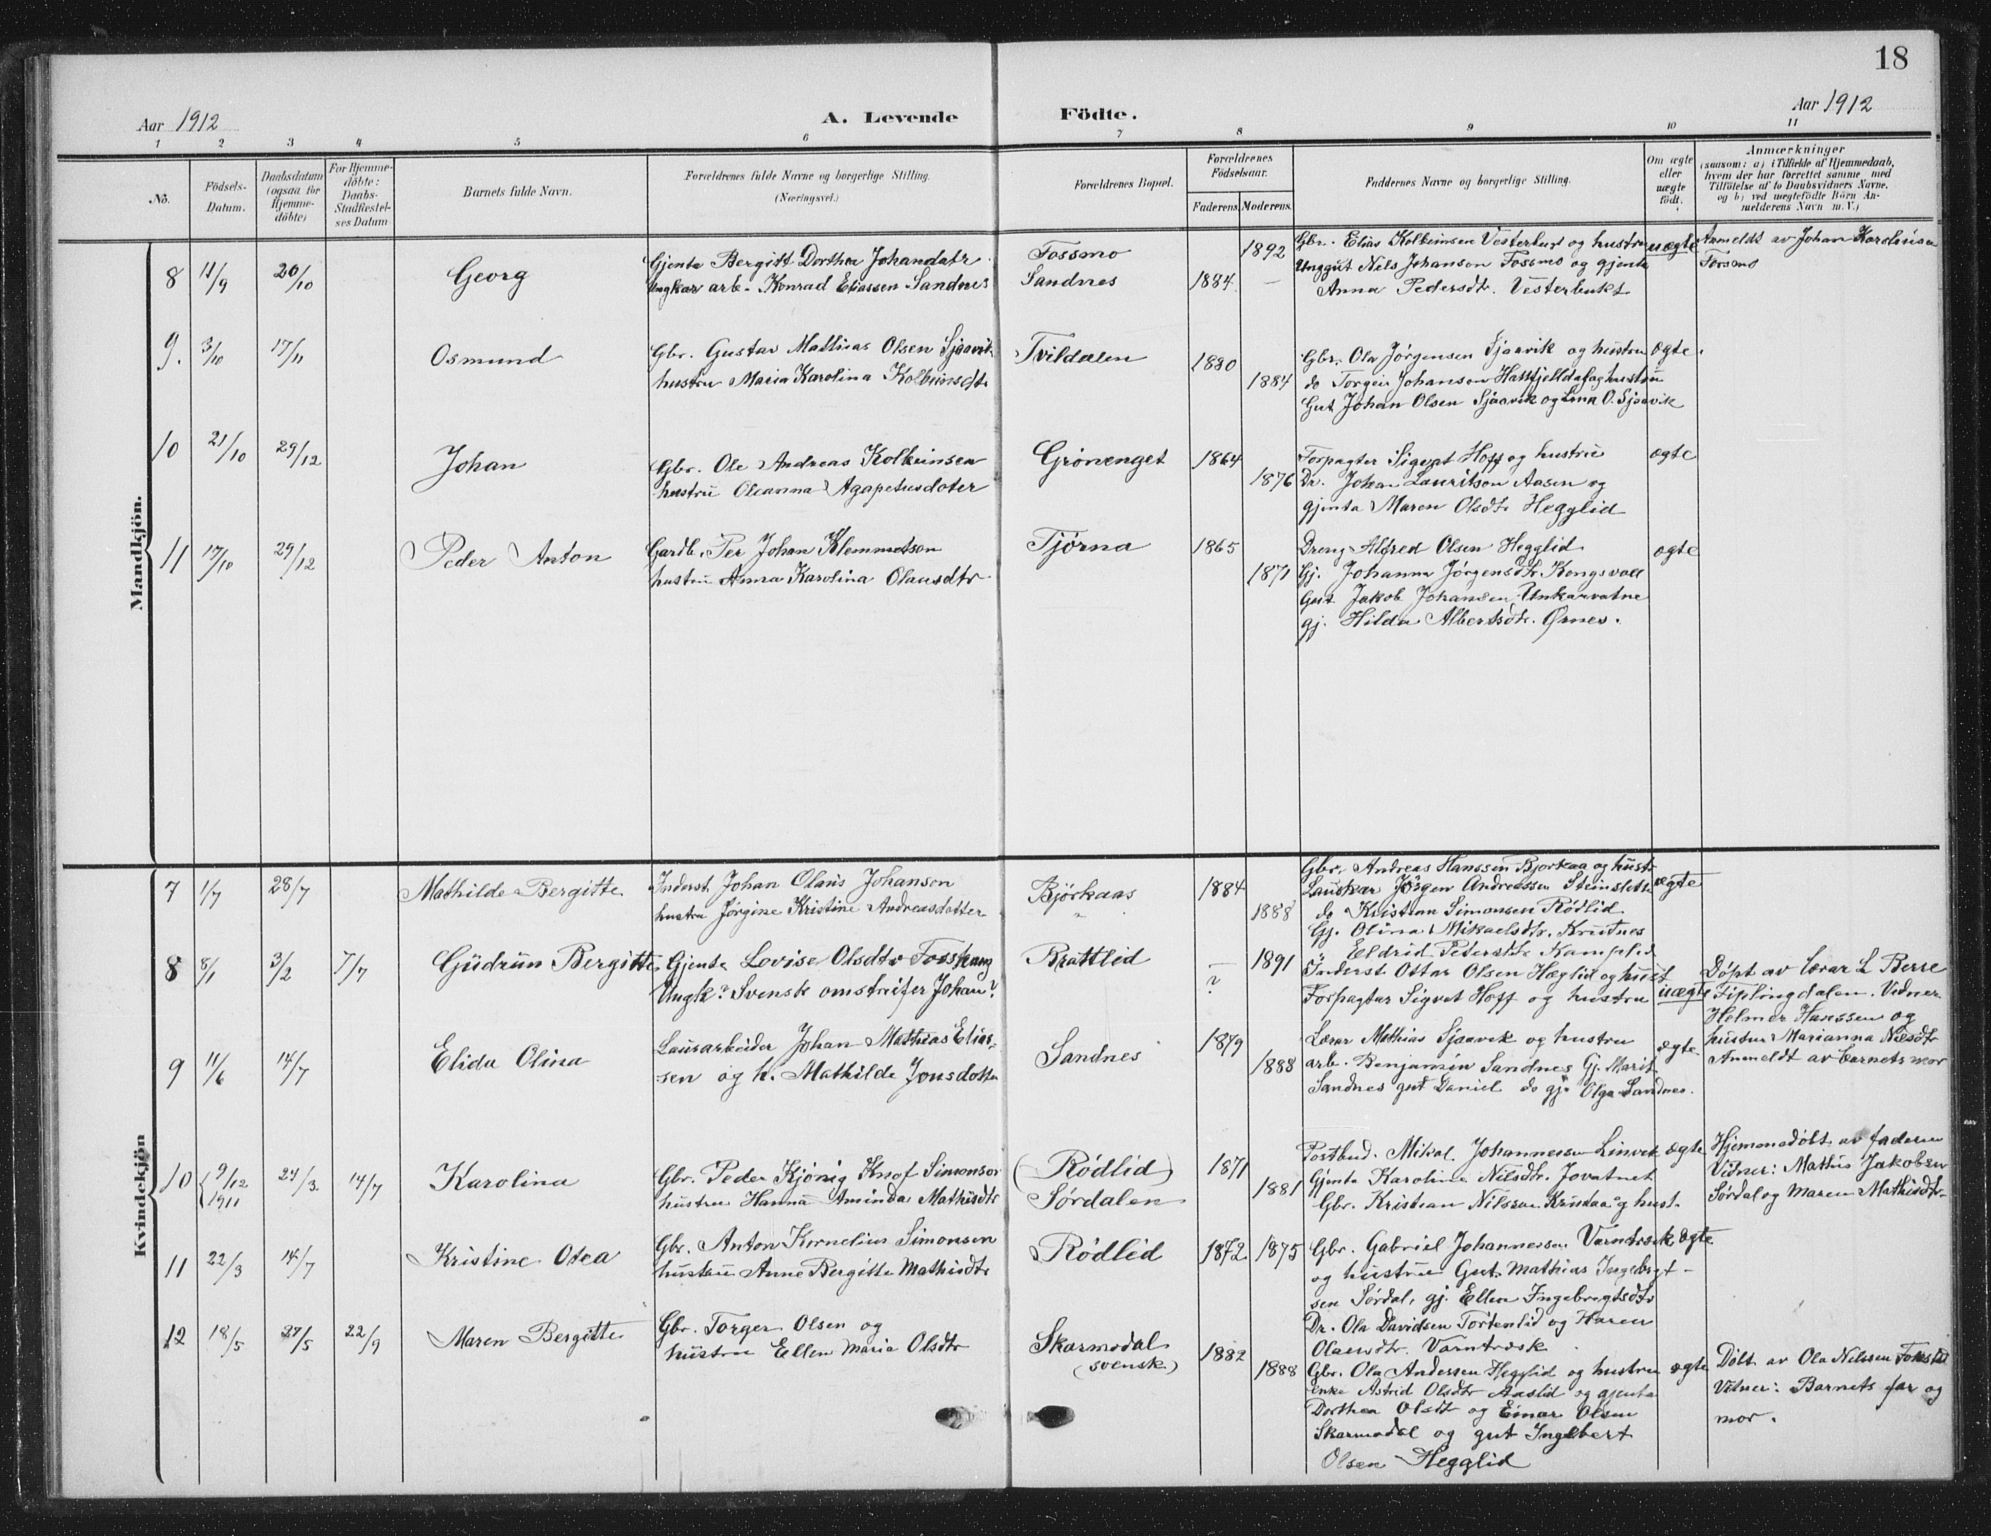 18
Aar 1912
A. Levende Födte.
Aar 1912
1 2 3 4 5 6 7 8 9 10 11
No.
Födsels-
Datum.
Daabsdatum
(ogsaa for
Hjemme-
döbte)
For Hjemme-
döbte:
Daabs-
Stadfæstel-
ses Datum
Barnets fulde Navn.
Forældrenes fulde Navne og borgerlige Stilling.
(Næringsvei.)
Forældrenes Bopæl.
Forældrenes
Födselsaar.
Faderens. Moderens.
Faddernes Navne og borgerlige Stilling.
Om ægte
eller
uægte
født.
Anmærkninger
(saasom: a) i Tilfælde af Hjemmedaab,
hvem der har forrettet samme med
Tilföielse af to Daabsvidners Navne,
og b) ved uægtefödte Börn An-
melderens Navn m. V.)
Mandkjön.
8 11/9 20/10 Georg
Gjenta Bergitt Dorthea Johansdatr
Ungkar arb. Konrad Eliassen Sandnes
Fossmo
Sandnes
1884 1892 —
Gbr. Elias Kolbeinsen Vesterbugt og hustru
Unggut Nels Johanson Fossmo og gjenta
Anna Pedersdtr. Vesterbukt
uægte
Anmeldt av Johan Karolinsen
Fossmo
9. 3/10 17/11 Osmund
Gbr. Gustav Mathias Olsen Sjaavik
hustru Maria Karolina Kolbeinsdtr
Tvildalen
1880
1884
Gbr. Ola Jørgensen Sjaavik og hustru
do Torgeir Johanson Hattfjelldal og hustru
Gut Johan Olsen Sjaavik og Lina O. Sjaavik
ægte.
10 21/10 29/12 Johan
Gbr. Ole Andreas Kolbeinsen
hustru Oleanna Agapetusdoter
Grönenget
1864
1876
Forpagter Sigvat Hoff og hustru
Dr. Johan Lauritson Aasen og
gjenta Maren Olsdtr Hegglid
ægte
11 17/10 29/12 Peder Anton
Gardb. Per Johan Klemmetson
hustru Anna Karolina Olausdtr
Tjørna
1865
1871
Dreng Alfred Olsen Hegglid
Gj. Johanna Jørgensdtr. Kongsvoll
Gut Jakob Johansen Unkarvatne
gj. Hilda Albertsdtr. Ørnes.
ægte
Kvindekjön
7 1/7 28/7 Mathilde Bergitte
Inderst Johan Olaus Johanson
hustru Jørgine Kristine Andreasdotter
Björkaas
1884
1888
Gbr. Andreas Hanssen Bjorkaa og hustr
Lauskar Jørgen Andreassen Steinslett
do Kristian Simonsen Rödlid
Gj. Olina Mikaelsdtr. Krutnes
" Eldrid Pedersdtr.
ægte
8 8/1 3/2 7/7 Gudrun Bergitte
Gjenta Lovise Olsdtr Fosskaug
Ungk? Svensk omstreifer Johan?
Brattlid
— ?
1891
Inderst Ottar Olsen Hæglid og hust
Forpagter Sigvat Hoff og hustru
uægte
Döpt av lærar L Berre
Fiplingdalen. Vidner
Helmer Hanssen og
hustru Marianna Nilsdtr
Anmeldt av barnets mor
9 11/6 14/7 Elida Olina
Lausarbeider Johan Mathias Elias-
sen og h. Mathilde Jonsdotter
Sandnes
1879
1888
Lærar Mathias Sjaavik og hustru
arb. Benjamin Sandnes Gj. Marit
Sandnes gut Daniel do gj. Olga Sandnes.
ægte
10 9/12 1911 24/3 14/7 Karolina
Gbr. Peder Kjönig Knof Simonsen
hustru Hanna Aminda Mathisdtr
(Rödlid)
Sørdalen
1871
1881
Postbud. Mikal Johannessen Linvik
Gjenta Karoline Nilsdtr. Jovatnet
Gbr. Kristian Nilsson Krutaa og hust.
ægte
Hjemmedöbt av faderen
Vidner: Mathis Jakobsen
Sørdal og Maren Mathisdtr.
11 22/3 14/7 Kristine Otea
Gbr. Anton Kornelius Simonsen
hustru Anne Bergitte Mathisdtr
Rödlid
1872 1875
Gbr. Gabriel Johannesen Varntræsk
og hustru Gut Mathias Ingebrigt-
sen Sørdal, gj. Ellen Ingebrigtsdtr
Dr. Ola Davidsen Tortenlid og Maren
Olausdtr. Varntræsk
ægte
12 18/5 27/5 22/9 Maren Bergitte
Gbr. Torger Olsen og
hustru Ellen Maria Olsdtr
Skarmodal
(svensk)
1882
1888
Gbr. Ola Andersen Hegglid og hustru
enke Astrid Olsdtr Aaslid og gjenta
Dorthea Olsdt og Einar Olsen
Skarmodal og gut Ingebert
Olsen Hegglid
ægte
Döbt av Ola Nilssen
Vitner: Barnets far og
mor.